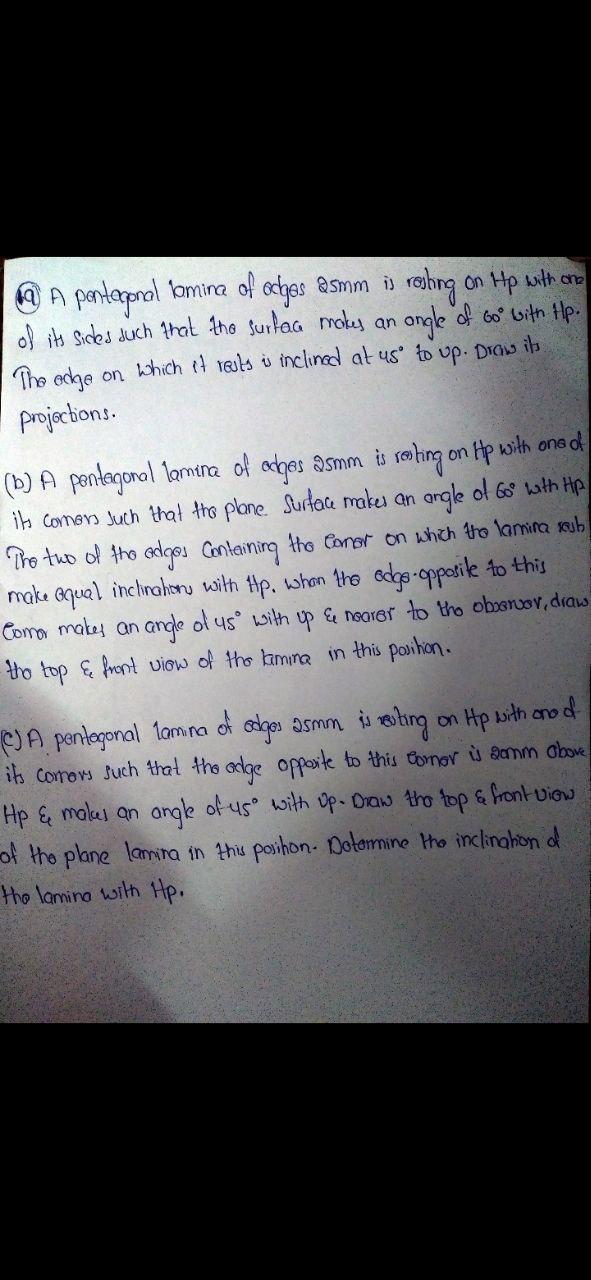 (a) A pentagonal lamina of edges 25mm is resting on Hp with one
of its sides such that the surface makes an angle of 60° with Hp.
The edge on which it rests is inclined at 45° to vp. Draw its
projections.
(b) A pentagonal lamina of edges 25mm is resting on Hp with one of
its corners such that the plane Surface makes an angle of 60° with HP
The two of the edges Containing the Corner on which the lamina rests
make equal inclinations with Hp. when the edge opposite to this
Corner makes an angle of 45° with vp & nearer to the observer, draw
the top & front view of the lamina in this position.
(c) A pentagonal lamina of edges 25mm is resting on Hp with one of
its corners such that the edge opposite to this Corner is above
Hp & makes an angle of 45° with Vp. Draw the top & front view
of the plane lamina in this position. Determine the inclination of
the lamina with Hp.